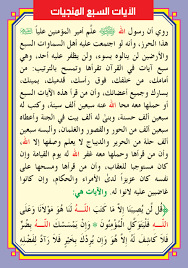 الآيات السبع المنجيات
روي أن رسول الله ﷺ علّم أمير المؤمنين علياً
هذا الحرز، وأنه لو اجتمعت عليه أهل السماوات السبع
والأرضين لن ينالوه بسوء، ولن يظفر عليه أحد، وهي
سبع آيات في القرآن تقرأها وتمسح بالترتيب، من
أمامك، من خلفك، فوق رأسك، قدميك، يمينك،
يسارك وجميع أعضائك، وأن من قرأ هذه الآيات
أو حملها معه محا الله عنه سبعين ألف سيئة، وكتب له
سبعين ألف حسنة، وبنى له ألف بيت في الجنة وأعطاه
سبعين ألف من الحور والقصور والغلمان، وألبسه سبعين
ألف حلة من الحرير والديباج لا يعلم وصفها إلا الله،
ومن حملها معه حفظه الله غفر له يوم القيامة وإن
كان مستوجبا للعقاب، وأن من قرأها أو حملها معه
كان عزيزاً لدى الأمراء والحكام، وإن كانوا
غاضبين عليه لانوا له. والآيات هي:
﴿قُل لَّن يُصِيبَنَا إِلَّا مَا كَتَبَ اللَّهُ لَنَا هُوَ مَوْلَانَا وَعَلَى
اللَّهِ فَلْيَتَوَكَّلِ الْمُؤْمِنُونَ * وَإِن يَمْسَسْكَ اللَّهُ بِضُرٍّ
فَلَا كَاشِفَ لَهُ إِلَّا هُوَ وَإِن يُرِدْكَ بِخَيْرٍ فَلَا رَادَّ لِفَضْلِهِ